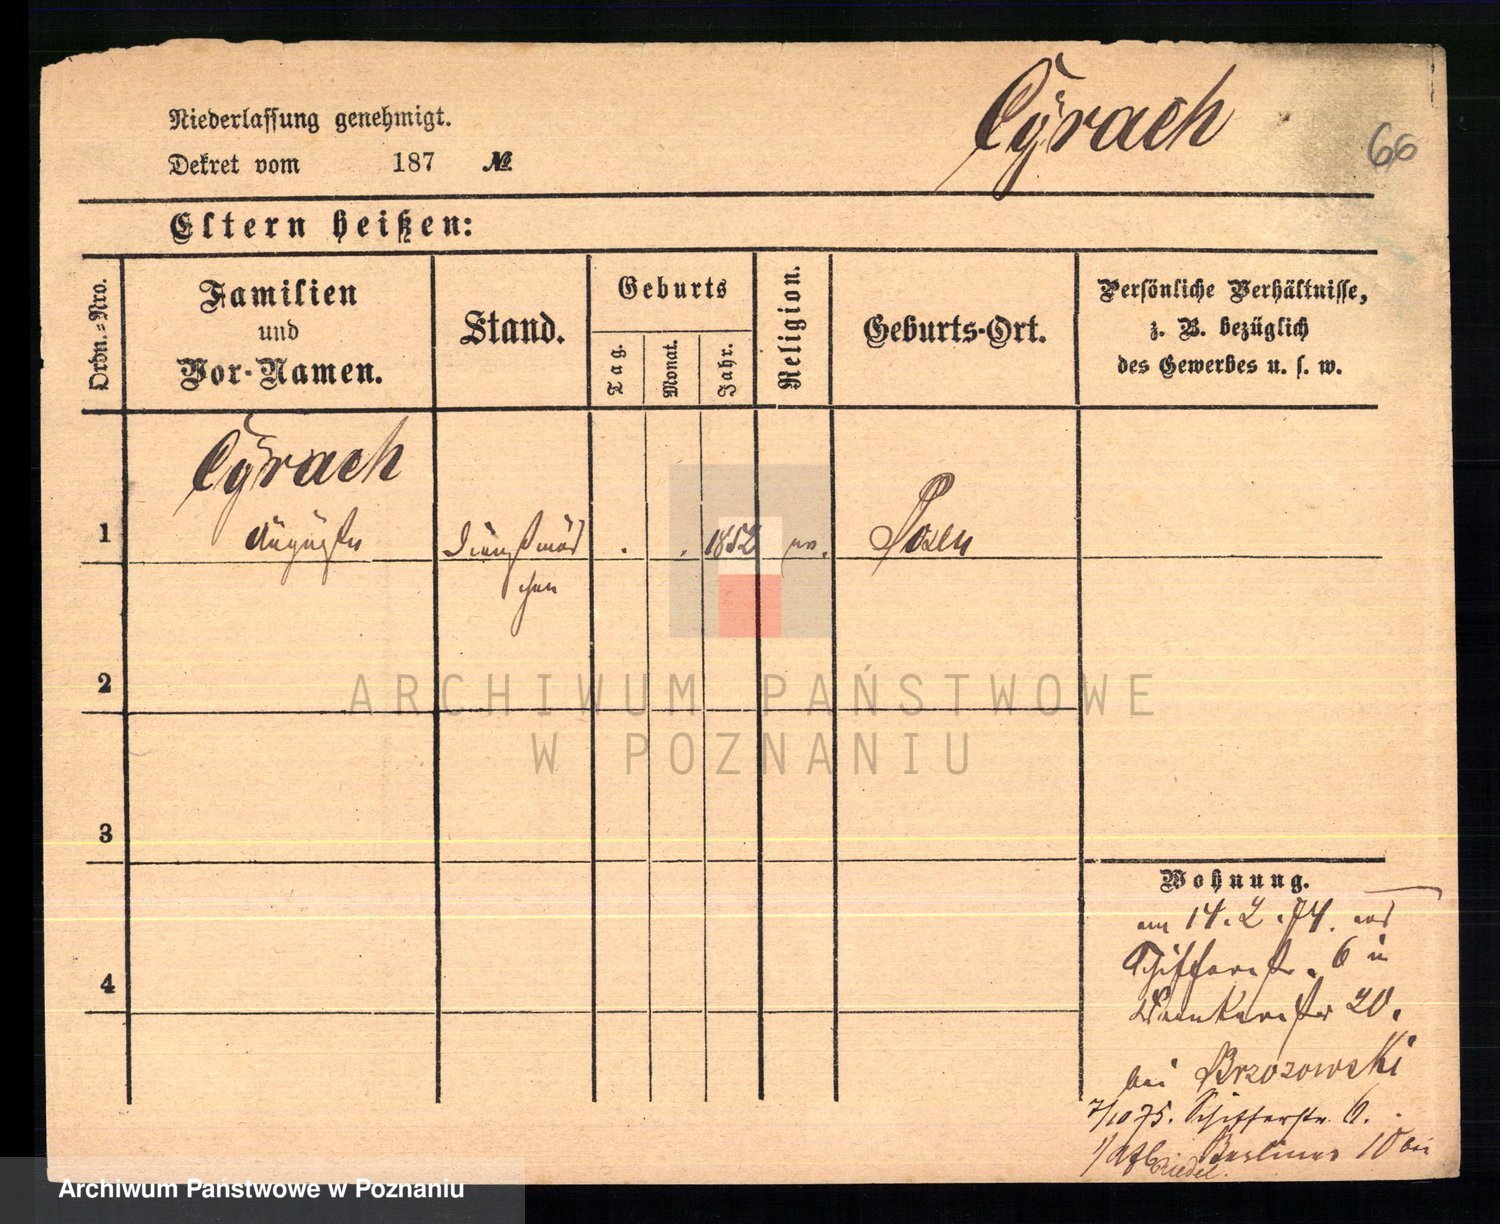 Cyrach
66
Niederlassung genehmigt.
Dekret vom 187 №
Eltern heißen:
Ordn.-Nro.
Familien
und
Vor-Namen.
Stand.
Geburts
Tag.
Monat.
Jahr.
Religion.
Geburts-Ort.
Persönliche Verhältnisse,
z. B. bezüglich
des Gewerbes u. s. w.
Cyrach
1 Auguste Dienstmäd 1852 Posen
chen
2
ARCHIWUM PAŃSTWOWE
W POZNANIU
3
4
Wohnung.
am 14. 2. 74.
Schifferstr. 6 in
20.
bei Brzozowski
7/10 75. Schifferstr. 6.
Berliner 10 bei
Riedel.
Archiwum Państwowe w Poznaniu